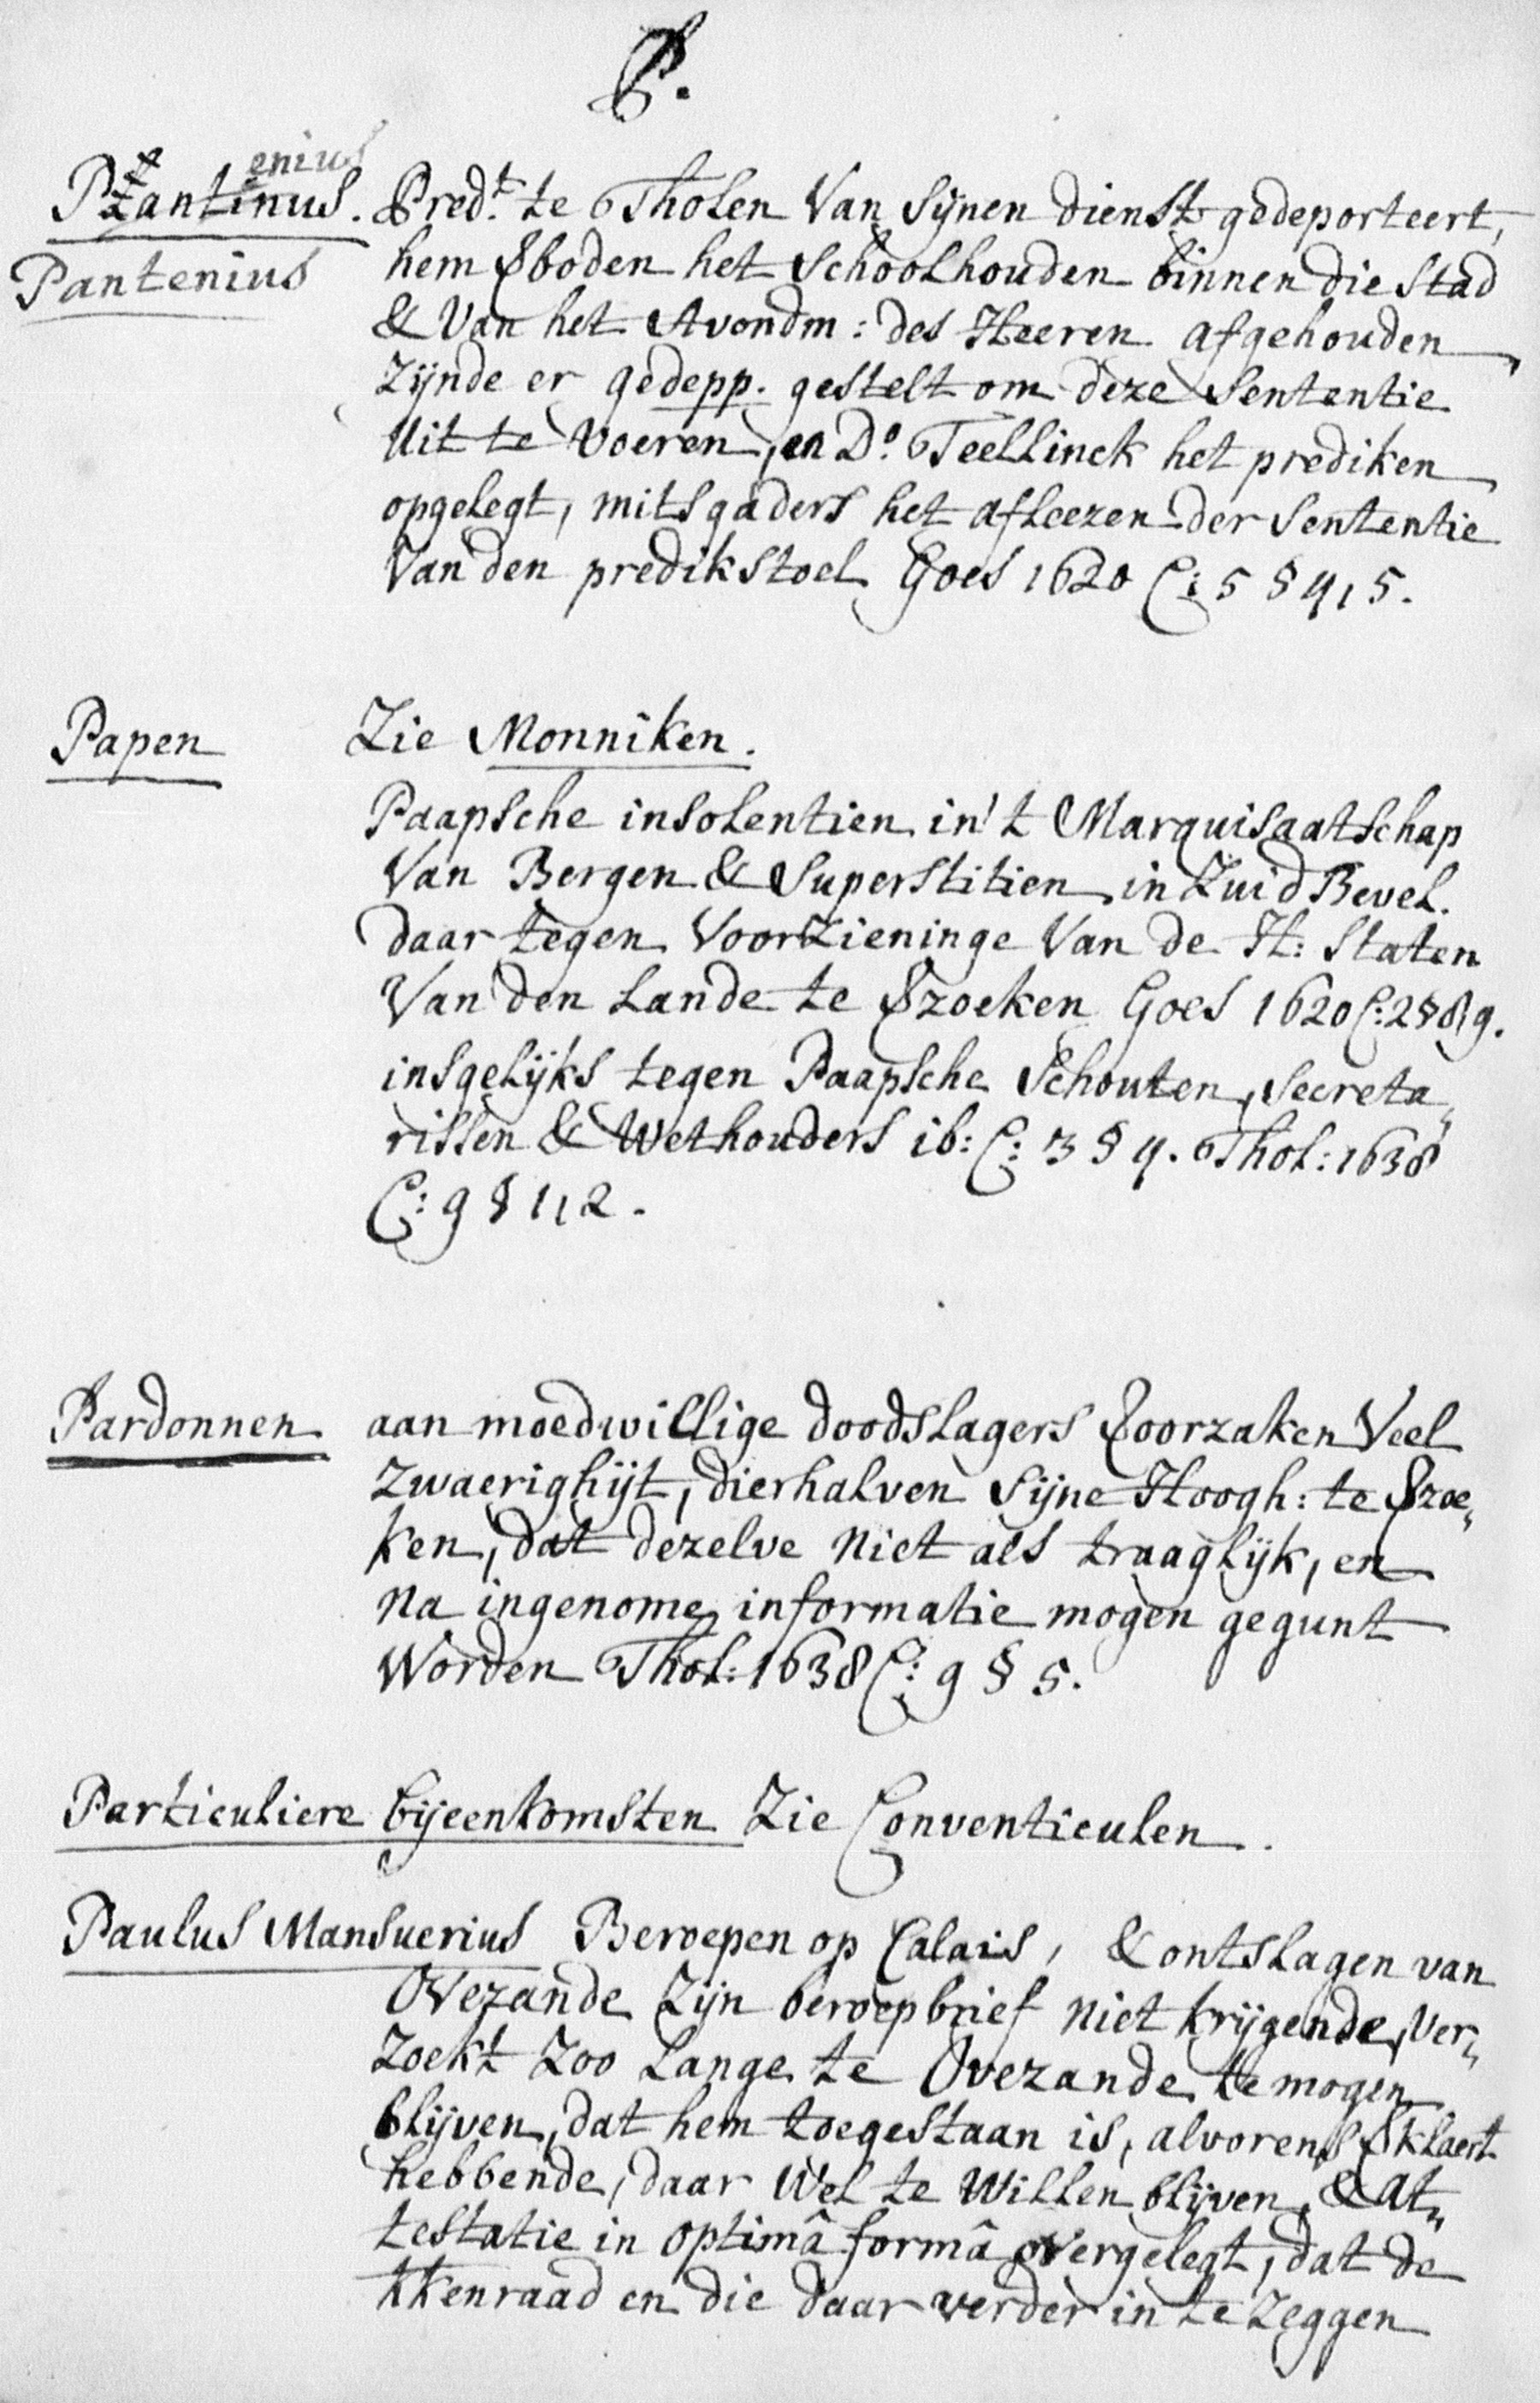 P.
enius
Plantinus. Pred.t te Tholen Van Sijnen dienst gedeporteert,
Pantenius hem ꝟboden het Schoolhouden binnen die Stad
& Van het Avondm: des Heeren afgehouden
Zijnde er gedepp. gestelt om deze Sententie
Uit te Voeren, en Do. Teellinck het prediken
opgelegt, mitsgaders het afleezen der Sententie
Van den predikstoel Goes 1620 C: 5 § 4, 5.
Papen Zie Monniken.
Paapsche insolentien in 't Marquisaatschap
Van Bergen & Superstitien in Zuid Bevel.
daar tegen Voorzieninge Van de H: Staten
Van den Lande te ꝟzoeken Goes 1620 C: 2 § 8, 9.
insgelijks tegen Paapsche Schouten, Secreta„
rissen & Wethouders ib: C: 3 § 4. Thol: 1638
C: 9 § 1, 2.
Pardonnen aan moedwillige doodslagers ꝟoorzaken Veel
Zwaerighijt, dierhalven Sijne Hoogh: te ꝟzoe„
ken, dat dezelve niet als traaglijk, en
na ingenome informatie mogen gegunt
Worden Thol: 1638 C: 9 § 5.
Particuliere bijeenkomsten Zie Conventiculen.
Paulus Mansuerius Beroepen op Calais, & ontslagen van
Ovezande Zijn beroepbrief niet krijgende, Ver„
Zoekt Zoo Lange te Ovezande te mogen
blijven, dat hem toegestaan is, alvorens ꝟklaert
hebbende, daar Wel te Willen blijven, & at„
testatie in optimâ formâ overgelegt, dat de
kkenraad en die daar verder in te Zeggen